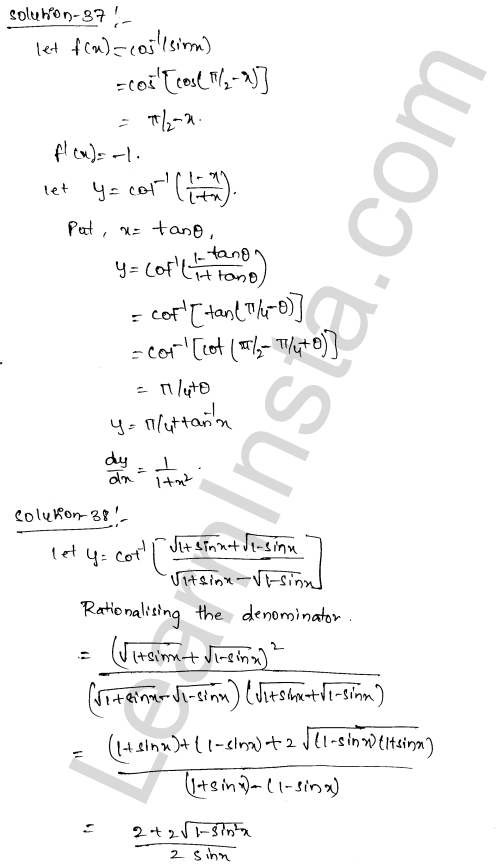 Solution-37:-
let f(x)=cos⁻¹(sinx)
=cos⁻¹[cos(π/2-x)]
= π/2-x.
f'(x)=-1.
let y=cot⁻¹((1-x)/(1+x)).
Put, x= tanθ,
y=cot⁻¹((1-tanθ)/(1+tanθ))
=cot⁻¹[tan(π/4-θ)]
=cot⁻¹[cot(π/2-π/4+θ)]
= π/4+θ
y= π/4+tan⁻¹x
dy/dx = 1/(1+x²).
Solution-38:-
let y=cot⁻¹[(√1+sinx+√1-sinx)/(√1+sinx-√1-sinx)]
Rationalising the denominator.
= (√1+sinx+√1-sinx)²/((√1+sinx-√1-sinx)(√1+sinx+√1-sinx))
= ((1+sinx)+(1-sinx)+2√(1-sinx)(1+sinx))/((1+sinx)-(1-sinx))
= (2+2√1-sin²x)/(2 sinx)
LearnInsta.com